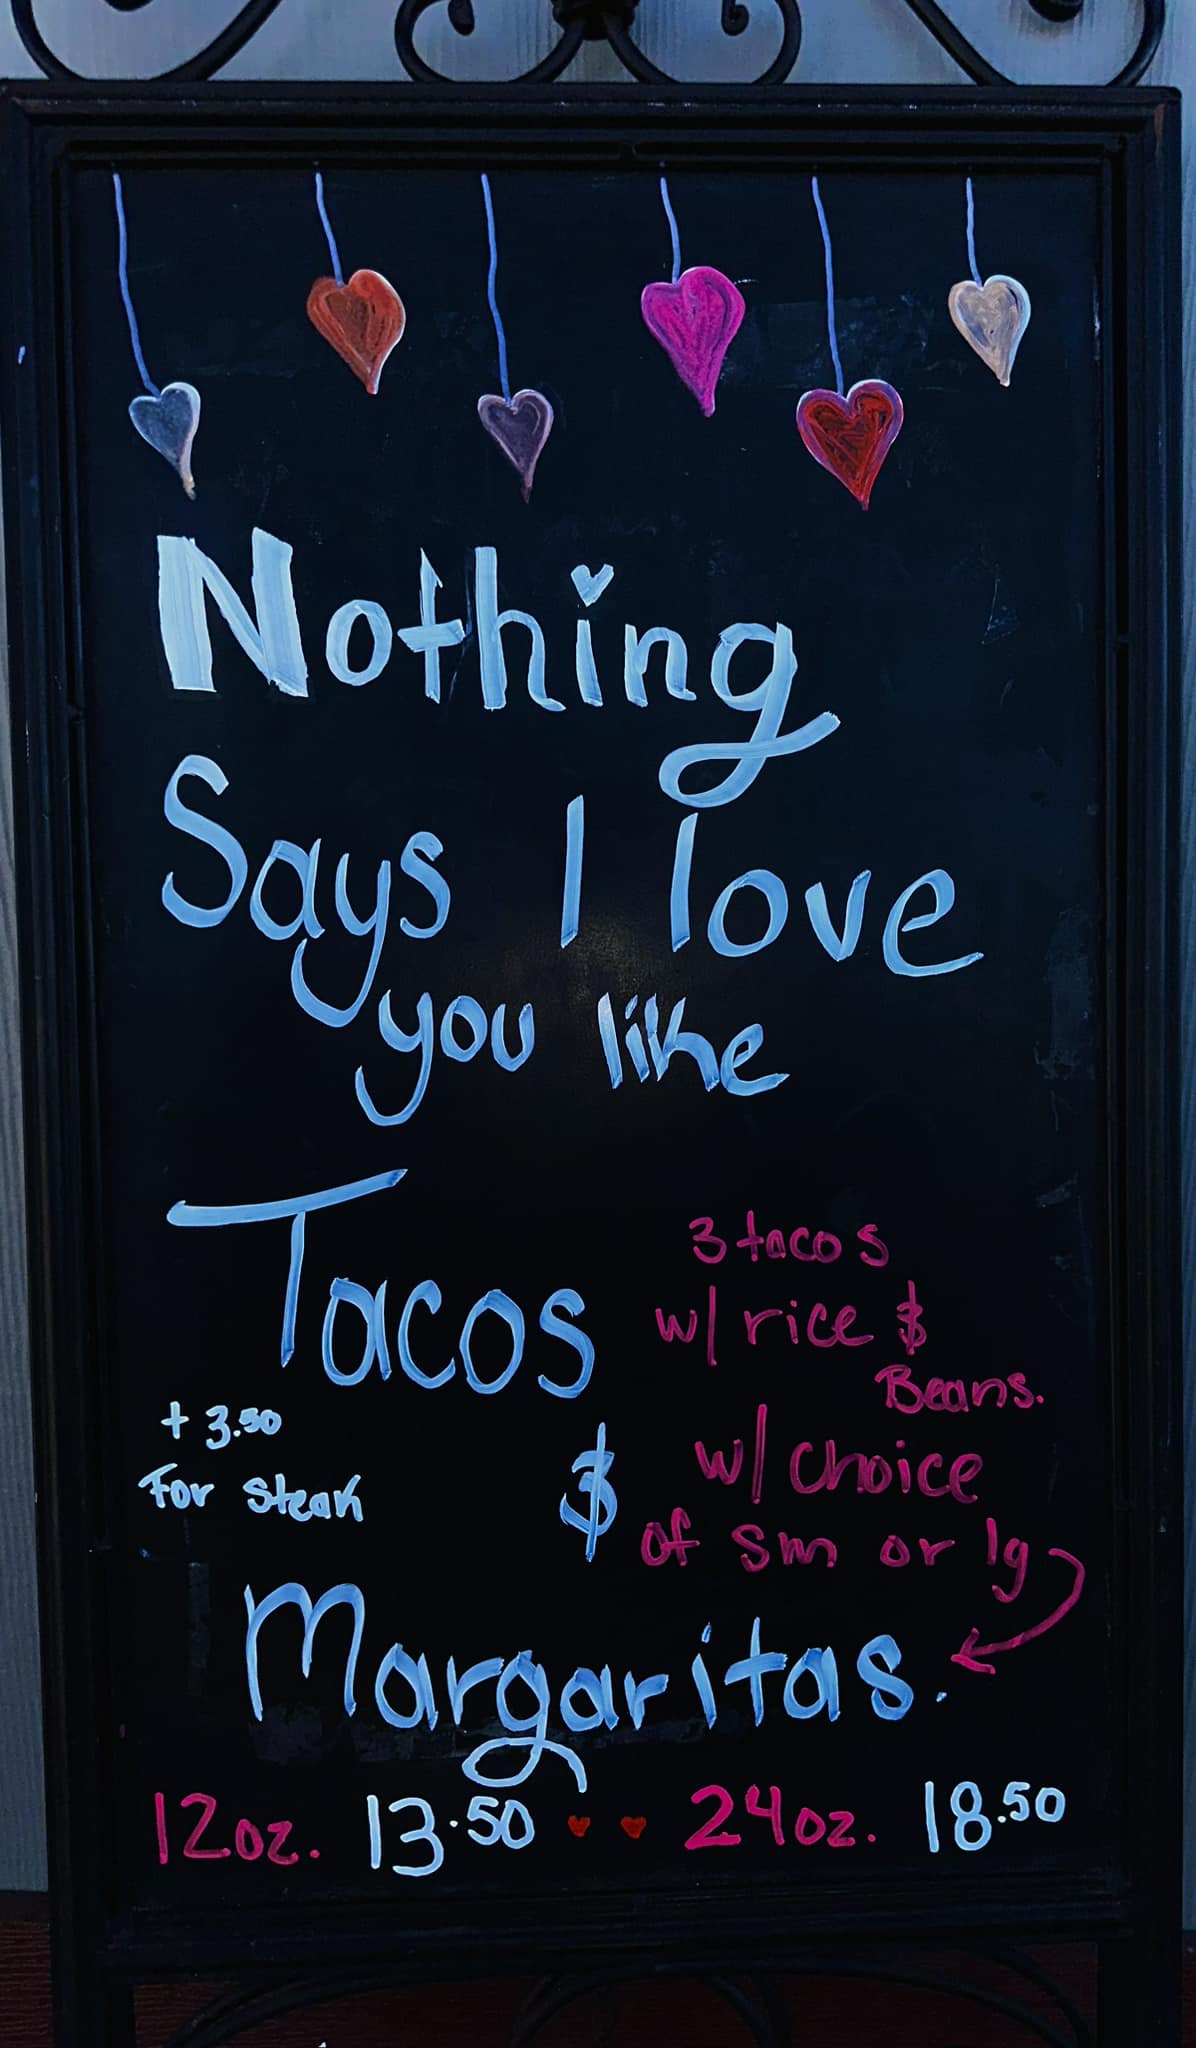 Nothing
Says I love
you like
Tacos
3 tacos
w/ rice &
Beans.
+ 3.50
For steak
&
w/ choice
of sm or lg
Margaritas.
12oz. 13.50 24oz. 18.50